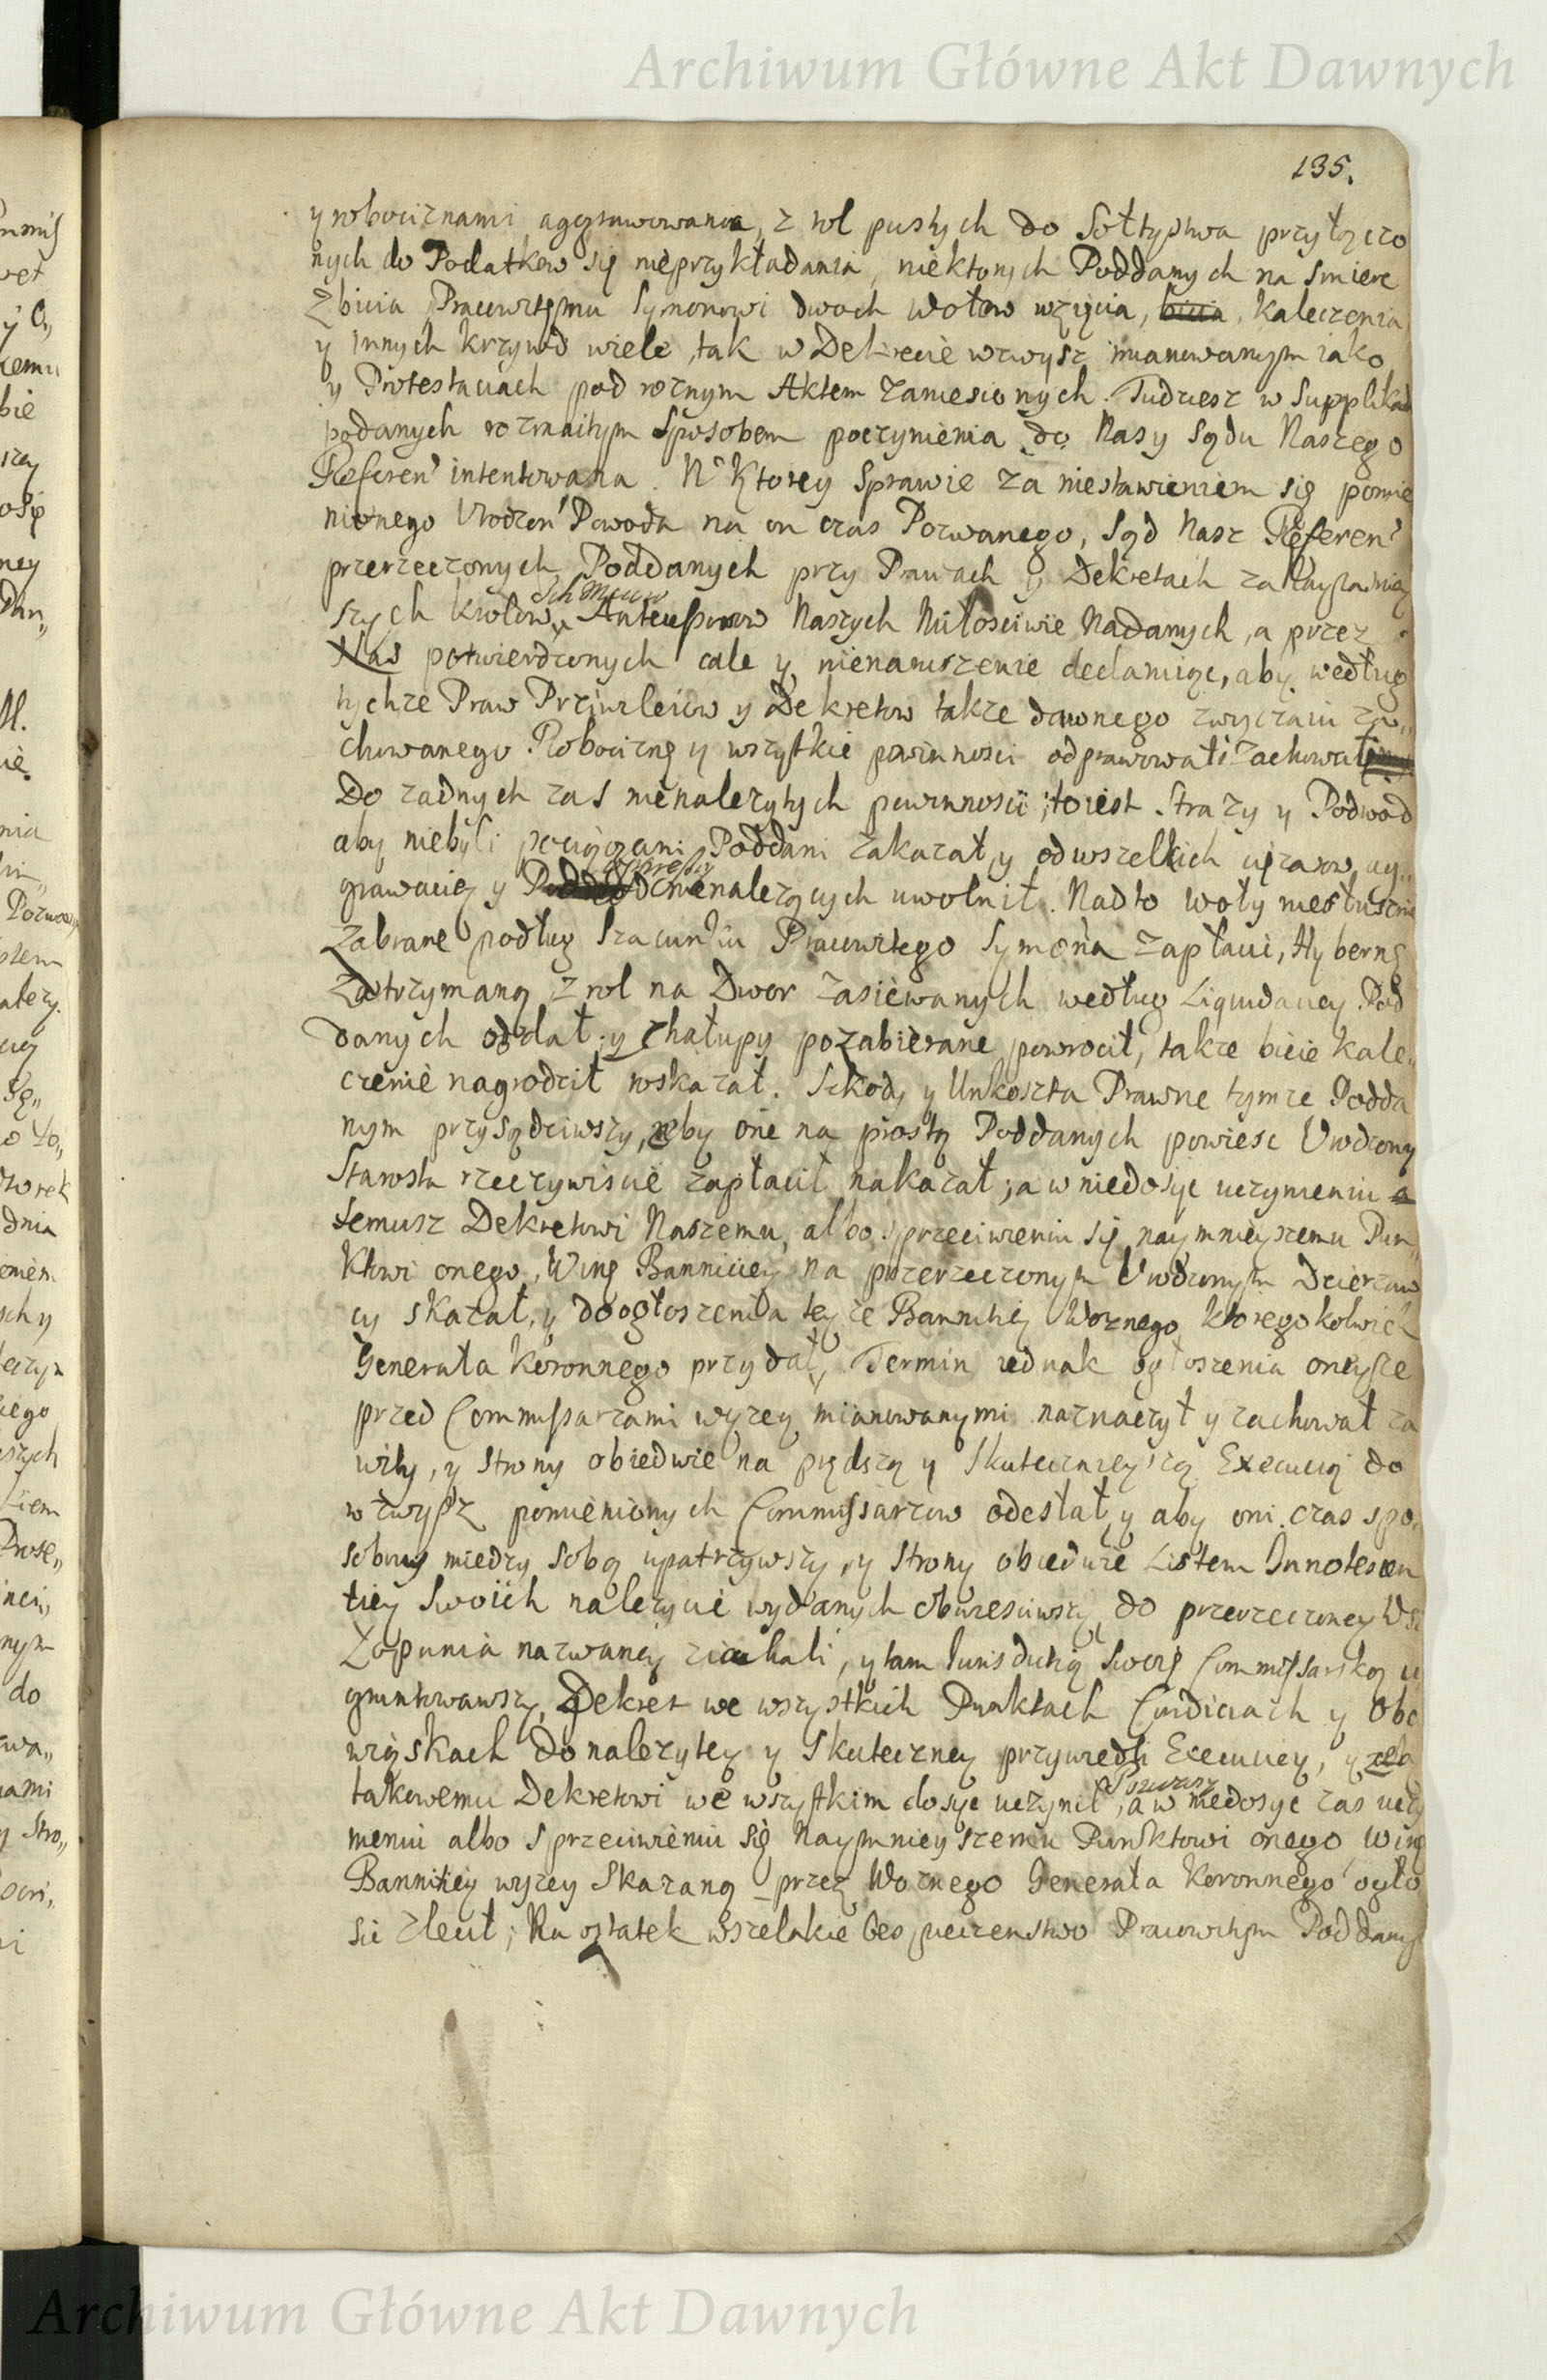 Archiwum Główne Akt Dawnych
135.
y robociznami aggrawowania, z rol pustych do Sołtystwa przyłączo
nych do Podatkow się nieprzykładania, niektorych Poddanych na smierc
zbicia, Pracowitemu Symonowi dwoch wołow wzięcia, bicia, kaleczenia
y innych krzywd wiele, tak w Dekrecie wzwysz mianowanym iako
y Protestaciach pod roznym Aktem zaniesionych. Tudziesz w Supplikach
podanych rozmaitym sposobem poczynienia do Nas y Sądu Naszego
Referen intentowana. W Ktorey Sprawie za niestawieniem się pomie
nionego Urodzon Powoda na on czas Pozwanego, Sąd Nasz Referen
przerzeczonych Poddanych przy Prawach y Dekretach zNayiasniey
szych Krolow Antecessorow Naszych Miłosciwie Nadanych, a przez
Nas potwierdzonych cale y nienaruszenie declaruiąc, aby według
tychze Praw Przywileiow y Dekretow takze dawnego zwyczaiu za„
chowanego Robociznę y wszystkie powinnosci odprawowali zachował
Do zadnych zas nienalezytych powinnosci; to iest Strazy y Podwod
aby niebyli pociągani Poddani zakazał, y od wszelkich ciężarow, ag„
grawaciey y nienalezących uwolnił. Nadto woły niesłusznie
zabrane podług szacunku Pracowitego Symona zapłacić, Hybernę
zatrzymaną z rol na Dwor zasiewanych według Liquidaciey Pod
danych oddał, y chałupy pozabierane powrocił, takze bicie kale„
czenie nagrodził wskazał. Szkody y Unkoszta Prawne tymze Podda
nym przysądziwszy, aby one na prostą Poddanych powiesc Urodzony
Starosta rzeczywiscie zapłacił nakazał; a w niedosyc uczynieniu
temusz Dekretowi Naszemu, albo sprzeciwieniu się naymnieyszemu Pun„
ktowi onego, Winę Banniciey na przerzeczonym Urodzonym Dzierzaw
cy skazał, y do ogłoszenia teyze Banniciey Woznego ktoregokolwiek
Generała Koronnego przydał, Termin iednak ogłoszenia oneysze
przed Commissarzami wyzey mianowanymi naznaczył y zachował za
wity, y Strony obiedwie na prędszą y skutecznieyszą Execucią do
wzwysz pomienionych Commissarzow odesłał, y aby oni czas spo„
sobny miedzy sobą upatrzywszy, y Strony obiedwie Listem Innotescen
tiey Swoiich nalezycie wydanych obwiesciwszy do przerzeczoney Wsi
Łopunia nazwaney ziachali, y tam Iurisdictią swoię Commissarską u
gruntowawszy, Dekret we wszystkich Punktach Condiciach y Obo
wiąskach do nalezytey y skuteczney przywiedli Execuciey, y zeby
takowemu Dekretowi we wszystkim dosyc uczynił, a w niedosyc zas uczy
nieniu albo sprzeciwieniu się Naymnieyszemu Punktowi onego, Winę
Banniciey wyzey Skazaną przez Woznego Generała Koronnego ogło
sic zlecił; Na ostatek wszelakie bespieczenstwo Pracowitym Poddanym
Archiwum Główne Akt Dawnych